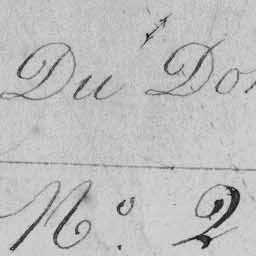 Du Do
N.° 2